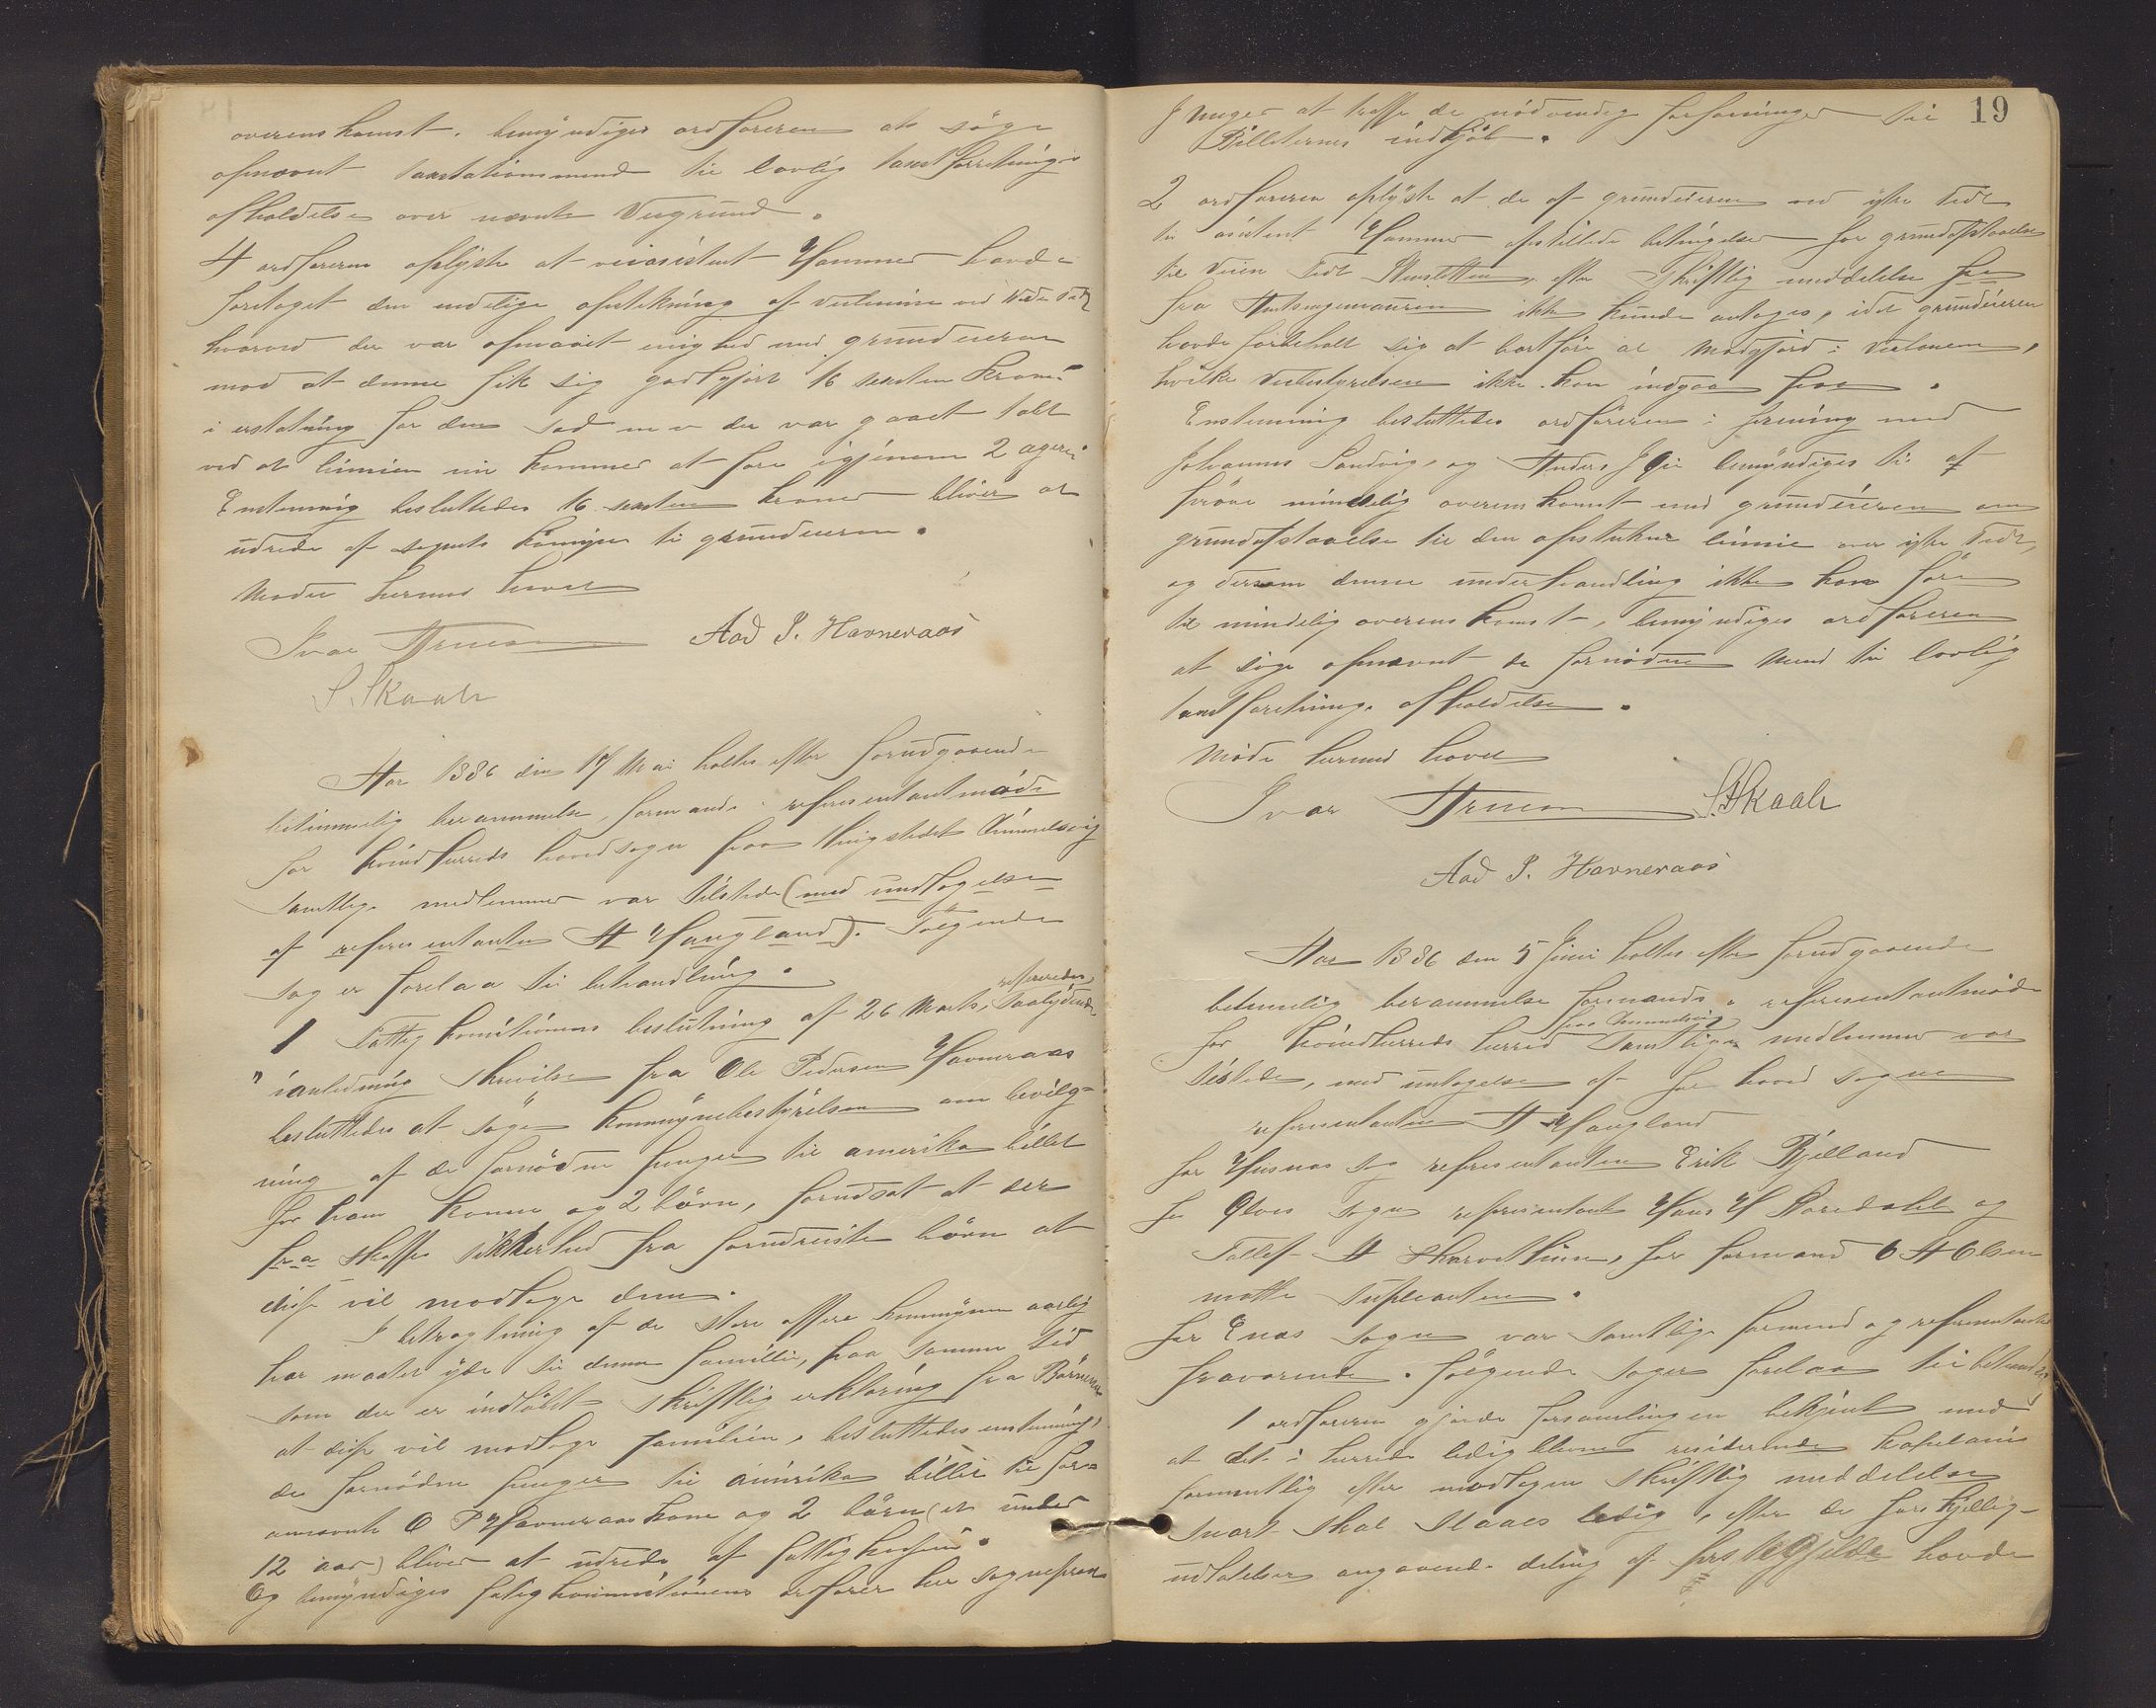 overenskomst. bemyndiges ordføreren at søge
opnævnt taxtationsmænd til lovlig taxtforretnings
afholdelse over nævnte Veigrund.
4 ordføreren oplyste at veiasistent Hammer havde
foretaget den endelige opstikning af veilinien ved
hvorved der var opnaaet enighed med grundeieren
mod at denne fik sig godtgjort 16 sexten Kroner
i erstatning for den
ved at linnien nu kommer at føre igjenem 2 agere
Enstemmig besluttedes 16 sexten kroner bliver at
udrede af sognets kommune til grundeieren.
Mødet hermed hævet
Ivar Arnesen Aad P. Havneraas
S. Skaale
Aar 1886 den 17 Mai holtes efter forudgaaende
betimmelig berammelse, formands & representantmøde
for Kvindherreds hovedsogn paa thingstedet Ommelsvig
samtlige medlemmer var tilstede (med undtagelse
af representanten A Haugland). Følgende
sager forelaa til behandling.
refereredes
1 Fattigkomitionens beslutning af 26 Marts, saalydende
"i anledning skrivelse fra Ole Pedersen Havneraas
besluttedes at søge Kommunebestyrelsen om bevilg=
ning af de fornødne penger til amerika billet
for ham kone og 2 børn, forudsat at der
fra skaffes sikkerhed fra forudreiste børn at
disse vil modtage dem.
I betragtning af de store offere kommunen aarlig
har maatet yde til denne familie, paa samme tid
som der er indløbet skriftlig erklæring fra Børnene
at disse vil modtage familien, besluttedes enstemmig,
de fornødne penger til amerika billet til for=
annævnte O P Havneraas kone og 2 børn (et under
12 aar) bliver at udrede af fattigkassen.
Og bemyndiges fatigkommitionens ordfører herr sogneprest
J Unger at træffe de nødvendig forføininger til
Billeternes indkjøb.
19
2 ordføreren oplyste at de af grundeieren ved ytre Tedt
til asistent Hammer opstillede betingelser for grundafstaaelse
til Veien Tedt efter skriftlig meddelelse fra
fra Amtsingeniøren ikke kunde antages, idet grundeieren
havde forbeholt sig at bortføre al Madgjord i Veilinien,
hvilke Veibestyrelsen ikke kan indgaa paa.
Enstemmig besluttedes ordføreren i forening med
Johannes Sandvig, og Anders J Øie bemyndiges til at
prøve mindelig overenskomst med grundeieren om
grundafstaaelse til den opstukne linnie over ytre Tedt,
og dersom denne underhandling ikke kan føre
til mindelig overenskomst, bemyndiges ordføreren
at søge opnævnt de fornødne Mænd til lovlig
taxtforetnings afholdelse.
Møde hermed hævet
Ivar Arnesen S. Skaale
Aad P. Havneraas
Aar 1886 den 5 Juni holtes efter forudgaaende
betimelig berammelse formands & representantmøde
paa Ommelsvig
for Kvindherreds herred Samtlige medlemmer var
tilstede, med undtagelse af for hoved sogne
representanten A Haugland
for Husnæs sogn representanten Erik Bjelland
for Ølves sogn representant Hans H og
Tollef A for formand O A Olsen
møtte Supleanten.
for Enæs sogn var samtlige formænd og representanter
fraværende. følgende sager forelaa til behandling
1 ordføreren gjorde forsamlingen bekjent med
at det i herredet ledigblevne residerende kapelani
formentlig efter modtagen skriftlig meddelelse
snart skal staaes ledig, efter de forskjellige
udtalelser angaaende deling af prestegjeldet havde